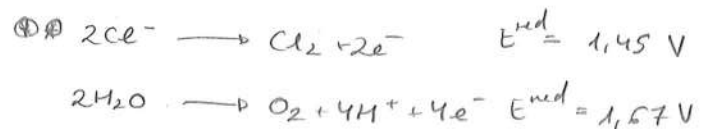 ⊕⊕ 2Cl⁻ → Cl₂ + 2e⁻ E^red = 1,45 V
2H₂O → O₂ + 4H⁺ + 4e⁻ E^red = 1,67 V